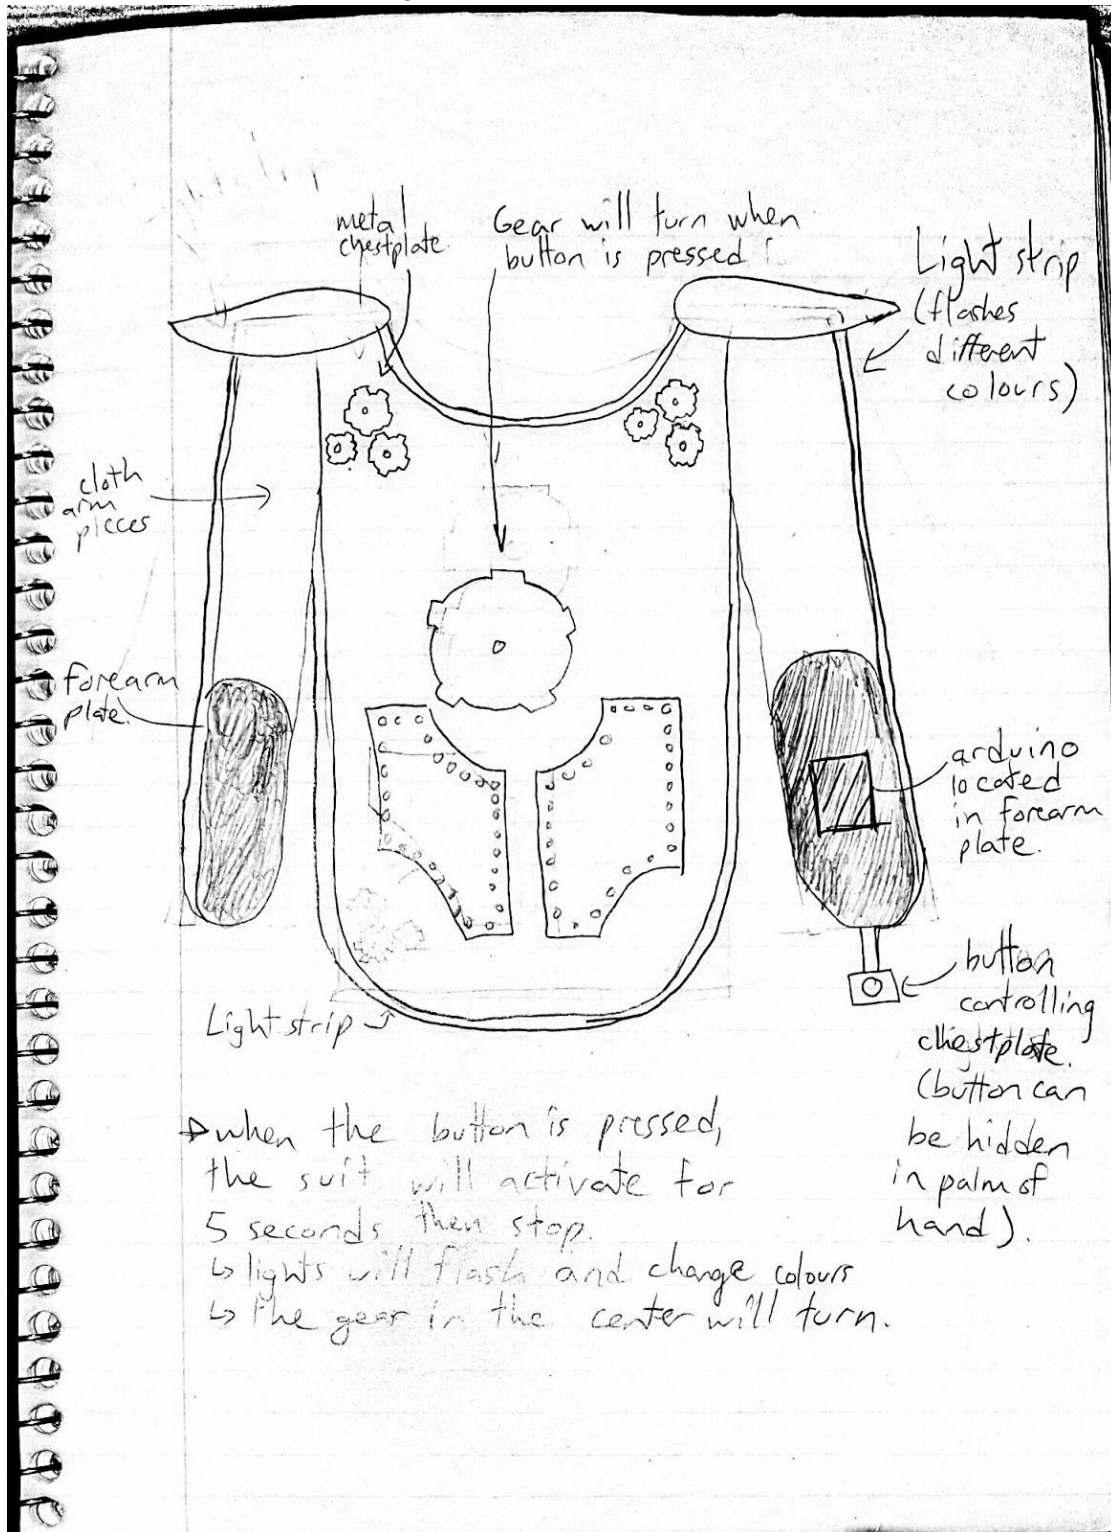 metal
chestplate.
Gear will turn when
button is pressed
Light strip
(flashes
different
colours)
cloth
arm
pieces
forearm
plate.
arduino
located
in forearm
plate.
button
controlling
chestplate.
(button can
be hidden
in palm of
hand).
Light strip
when the button is pressed,
the suit will activate for
5 seconds then stop.
↳ lights will flash and change colours
↳ the gear in the center will turn.